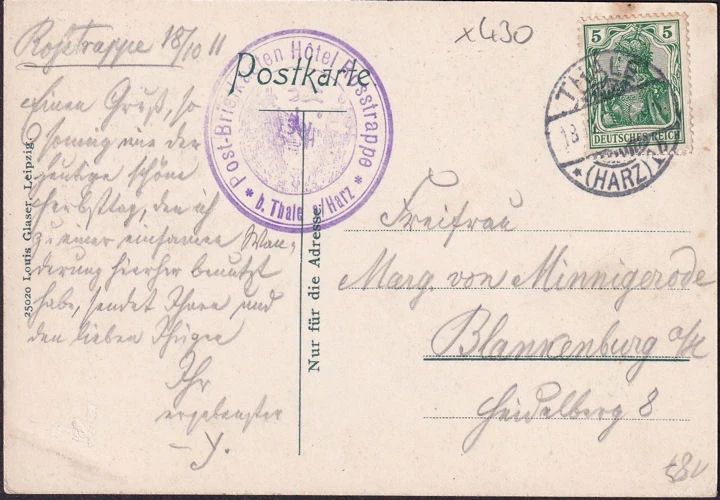 Roßtrappe 18/10 11
Einen Gruß, so
sonnig wie der
heutige schöne
Herbsttag, den ich
zu einer einsamen Wan-
derung hierher benutzt
habe, sendet Ihnen und
den lieben
Ihr
ergebenster
25020 Louis Glaser, Leipzig
Postkarte
* Post-Briefkasten Hôtel Rosstrappe *
b. Thale a/Harz
Nur für die Adresse
x430
5 5
DEUTSCHES REICH
THALE
18.
* (HARZ)
Freifrau
Marg. von Minnigerode
Blankenburg a/H
Heidelberg 8